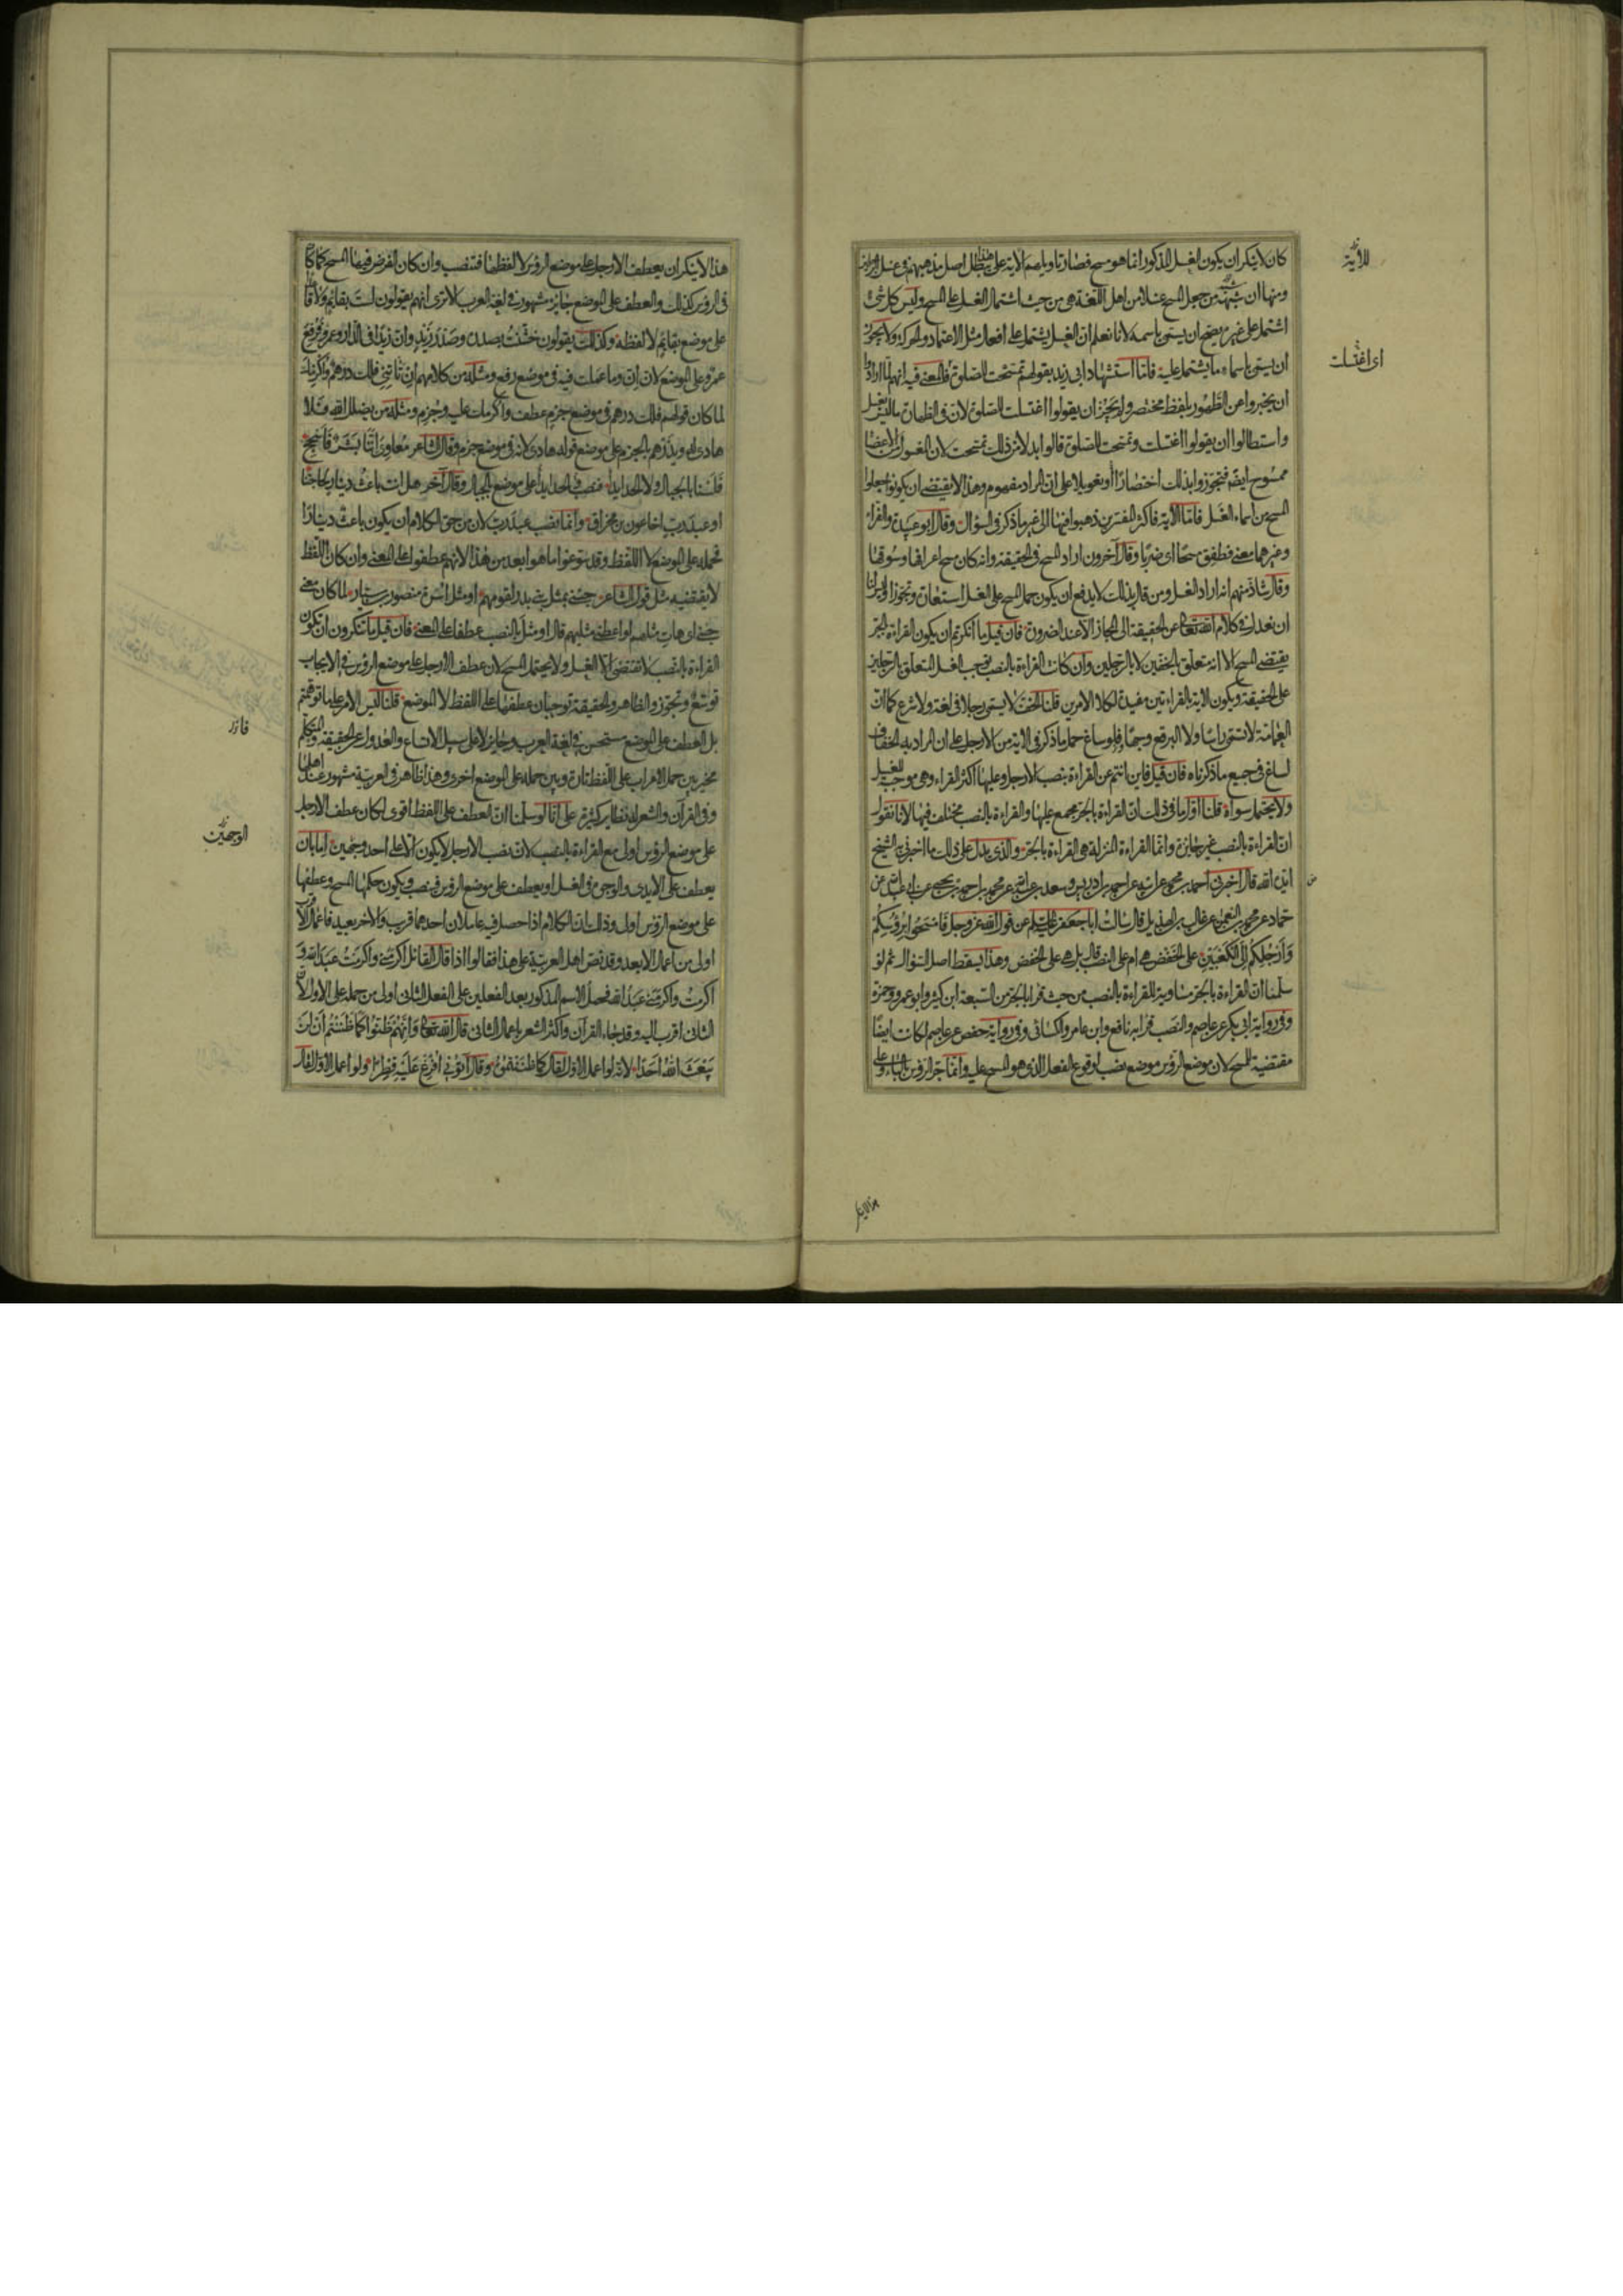 كان لا ينكر ان يكون الغسل المذكور انما هو مسح فصار تاويلهم الآية على هذا يبطل اصل مذهبهم في غسل
ومنها ان شبهة من جعل المسح غسلا من اهل اللغة هي من حيث اشتمال الغسل على المسح وليس كل شئ
اشتمل على غيره يصح ان يسمى باسمه لانا نعلم ان الغسل يشتمل على افعال مثل الاعتماد والحركة ولا يجوز
ان يسمى باسماء ما يشتمل عليه فاما استشهاد ابى زيد بقولهم تمسحت للصلوة فالمعنى فيه انهم لما ارادوا
ان يخبروا عن الطهور بلفظ مختصر ولم يجز ان يقولوا اغتسلت للصلوة لان في الطهارة ما ليس بغسل
واستطالوا ان يقولوا اغتسلت وتمسحت للصلوة قالوا بدلا من ذلك تمسحت لان المغسول من الاعضا
ممسوح ايضا فتجوزوا بذلك اختصارا وتعويلا على ان المراد مفهوم وهذا لا يقتضى ان يكونوا جعلوا
المسح من اسماء الغسل فاما الآية فاكثر المفسرين ذهبوا فيها الى غير ما ذكر فى السؤال وقال ابو عبيدة والفراء
وغيرهما معنى فطفق مسحا اى ضربا وقال آخرون اراد المسح فى الحقيقة وانه كان مسح اعرافها وسوقها
وقال شاذ منهم انه اراد الغسل ومن قال بذلك لا يدفع ان يكون حمل المسح على الغسل استعارة وتجوزا وليس لنا
ان نعدل فى كلام الله تعالى عن الحقيقة الى المجاز الا عند الضرورة فان قيل ما انكرتم ان يكون القراءة بالجر
يقتضى المسح الا انه متعلق بالخفين لا بالرجلين وان كانت القراءة بالنصب توجب الغسل المتعلق بالرجلين
على الحقيقة ويكون الآية بالقراءتين مفيدة لكلا الامرين قلنا الخف لا يسمى رجلا فى لغة ولا شرع كما ان
العمامة لا تسمى راسا ولا البرقع وجها فلو ساغ حمل ما ذكر فى الآية من الارجل على ان المراد به الخفاف
لساغ فى جميع ما ذكرناه فان قيل فاين انتم عن القراءة بنصب الارجل وعليها اكثر القراء وهى موجبة للغسل
ولا يحتمل سواه قلنا اول ما فى ذلك ان القراءة بالجر مجمع عليها والقراءة بالنصب مختلف فيها لانا نقول
ان القراءة بالنصب غير جايزة وانما القراءة المنزلة هى القراءة بالجر والذى يدل على ذلك ما اخبرنى به الشيخ
ايده الله قال اخبرنى احمد بن محمد عن ابيه عن احمد بن ادريس وسعد بن عبد الله عن محمد بن احمد بن يحيى عن ابى عبد الله عن
حماد عن محمد بن النعمن عن غالب بن الهذيل قال سالت ابا جعفر عليه السلم عن قول الله عز وجل فَامْسَحُوا بِرُؤُسِكُمْ
وَاَرْجُلِكُمْ اِلَى الْكَعْبَيْنِ على الخفض هى ام على النصب قال بل هى على الخفض وهذا يسقط اصل السؤال ثم لو
سلمنا ان القراءة بالجر مساوية للقراءة بالنصب من حيث قرا بالجر من السبعة ابن كثير وابو عمرو وحمزة
وفى رواية ابى بكر عن عاصم والنصب قرا به نافع وابن عامر والكسائى وفى رواية حفص عن عاصم لكانت ايضا
مقتضية للمسح لان موضع الرؤس موضع نصب لوقوع الفعل الذى هو المسح عليه وانما جر الرؤس بالباء وعلى
للآية
اى اغتسلت
هذا لا ينكر
هذا لا ينكر ان يعطف الارجل على موضع الرؤس لا لفظها فتنصب وان كان الفرض فيها المسح كما كان
فى الرؤس كذلك والعطف على الموضع جايز مشهور فى لغة العرب الا ترى انهم يقولون لست بقائم ولا قاعدا
على موضع بقائم لا لفظه وكذلك يقولون خشنت بصدره وصدر زيد وان زيدا فى الدار وعمرو فرفع
عمرو على الموضع لان ان وما عملت فيه فى موضع رفع ومثله من كلامهم ان تاتنى فلك درهم واكرمك
لما كان قولهم فلك درهم فى موضع جزم عطف واكرمك عليه وجزم ومثله من يضلل الله فلا
هادى له ويذرهم بالجزم على موضع قوله هادى لانه فى موضع جزم وقال الشاعر مُعاوِىَ اِنَّنا بَشَرٌ فَاَسْجِحْ
فَلَسْنا بالجبال ولا الحديدا فنصب الحديدا على موضع الجبال وقال آخر هل انت باعث دينار لحاجتنا
او عبد رب اخا عون بن مخراق وانما نصب عبد رب لان من حق الكلام ان يكون باعث دينارا
فحمله على الموضع لا اللفظ وقد سوغوا ما هو ابعد من هذا لانهم عطفوا على المعنى وان كان اللفظ
لا يقتضيه مثل قول الشاعر جئنى بمثل بنى بدر لقومهم او مثل اسرة منظور بن سيار لما كان معنى
جئنى اى هات مثلهم او اعطنى مثلهم قال او مثل بالنصب عطفا على المعنى فان قيل ما تنكرون ان تكون
القراءة بالنصب لا تقتضى الا الغسل ولا يحتمل المسح لان عطف الارجل على موضع الرؤس فى الايجاب
توسع وتجوز والظاهر والحقيقة توجبان عطفها على اللفظ لا الموضع قلنا ليس الامر على ما توهمتم
بل العطف على الموضع مستحسن فى لغة العرب وجايز لا على سبيل الاتساع والعدول عن الحقيقة والمتكلم
مخير بين حمل الاعراب على اللفظ تارة وبين حمله على الموضع اخرى وهذا ظاهر فى العربية مشهور عند اهلها
وفى القرآن والشعر له نظاير كثيرة على انا لو سلمنا ان العطف على اللفظ اقوى لكان عطف الارجل
على موضع الرؤس اولى مع القراءة بالنصب لان نصب الارجل لا يكون الا على احد وجهين اما بان
يعطف على الايدى والوجوه فى الغسل او يعطف على موضع الرؤس فينصب ويكون حكمها المسح وعطفها
على موضع الرؤس اولى وذلك ان الكلام اذا حصل فيه عاملان احدهما قريب والآخر بعيد فاعمال الاقرب
اولى من اعمال الابعد وقد نص اهل العربية على هذا فقالوا اذا قال القائل اكرمنى واكرمت عبد الله و
اكرمت واكرمنى عبد الله فحمل الاسم المذكور بعد الفعلين على الفعل الثانى اولى من حمله على الاول لان
الثانى اقرب اليه وقد جاء القرآن واكثر الشعر باعمال الثانى قال الله تعالى وَاَنَّهُمْ ظَنُّوا كَما ظَنَنْتُمْ اَنْ لَنْ
يَبْعَثَ اللهُ اَحَدًا لانه لو اعمل الاول لقال كما ظننتموه وقال آتُونِى اُفْرِغْ عَلَيْهِ قِطْرًا ولو اعمل الاول لقال
الوجهين